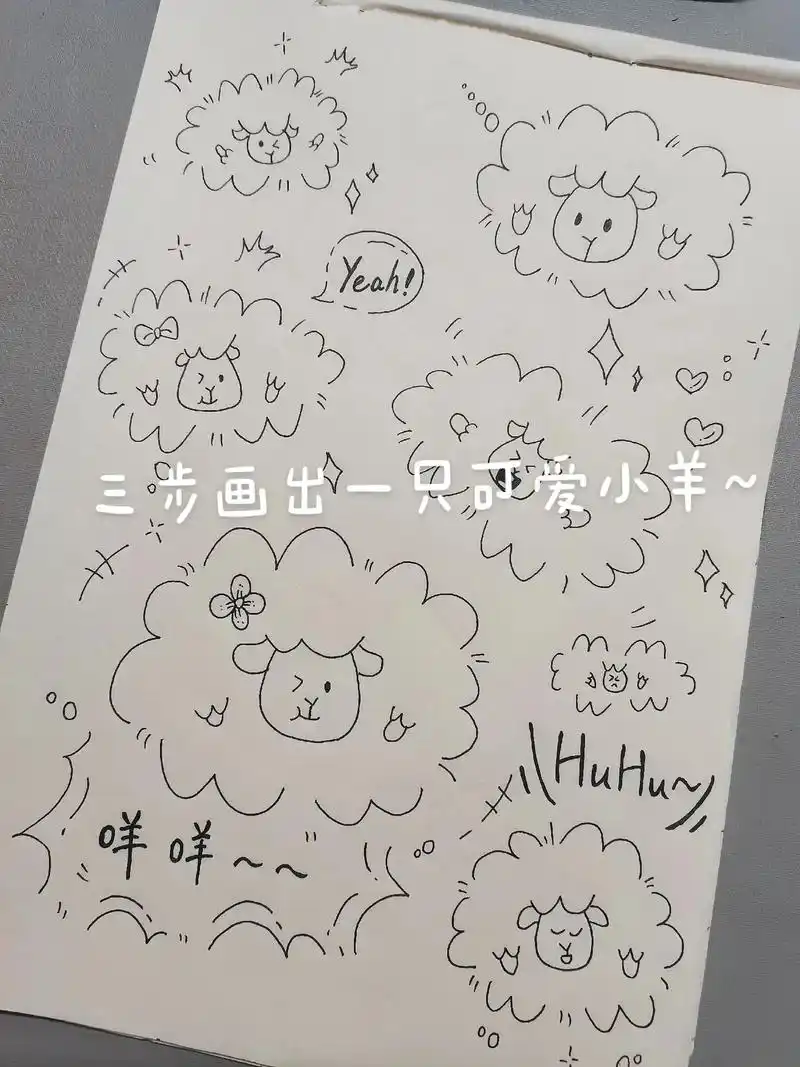 Yeah!
三步画出一只可爱小羊~
HuHu~
咩 咩~~